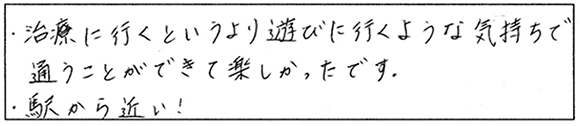 ・治療に行くというより遊びに行くような気持ちで
通うことができて楽しかったです.
・駅から近い!